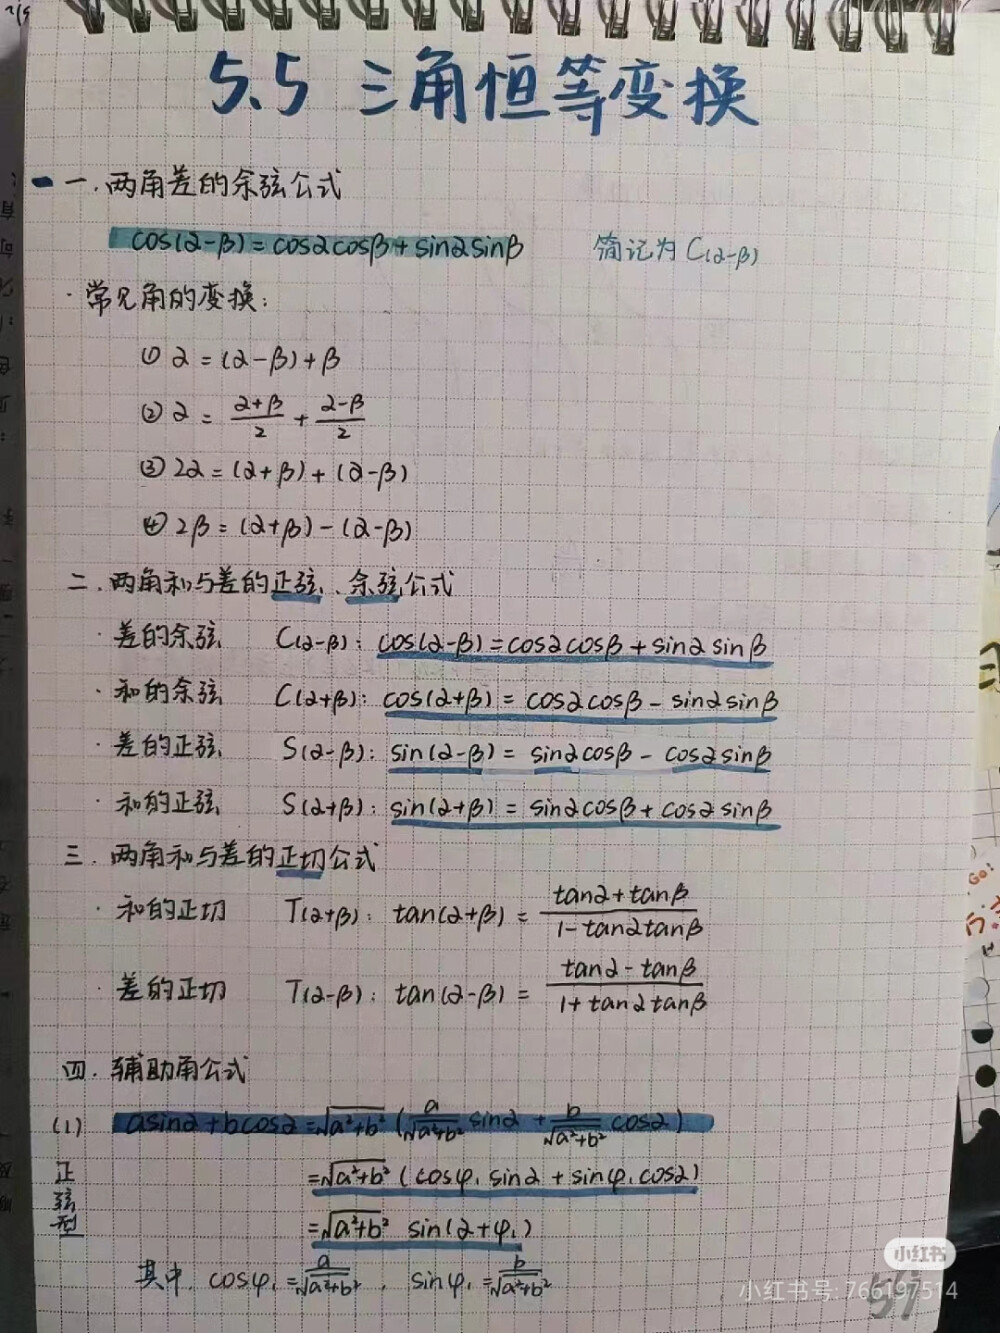 5.5 三角恒等变换
一. 两角差的余弦公式
cos(α-β)=cosαcosβ+sinαsinβ 简记为 C(α-β)
· 常见角的变换:
① α=(α-β)+β
② α=\frac{α+β}{2}+\frac{α-β}{2}
③ 2α=(α+β)+(α-β)
④ 2β=(α+β)-(α-β)
二. 两角和与差的正弦、余弦公式
· 差的余弦 C(α-β): cos(α-β)=cosαcosβ+sinαsinβ
· 和的余弦 C(α+β): cos(α+β)=cosαcosβ-sinαsinβ
· 差的正弦 S(α-β): sin(α-β)=sinαcosβ-cosαsinβ
· 和的正弦 S(α+β): sin(α+β)=sinαcosβ+cosαsinβ
三. 两角和与差的正切公式
· 和的正切 T(α+β): tan(α+β)=\frac{tanα+tanβ}{1-tanαtanβ}
· 差的正切 T(α-β): tan(α-β)=\frac{tanα-tanβ}{1+tanαtanβ}
四. 辅助角公式
(1) asinα+bcosα=\sqrt{a²+b²}(\frac{a}{\sqrt{a²+b²}}sinα+\frac{b}{\sqrt{a²+b²}}cosα)
正弦型
=\sqrt{a²+b²}(cosφ₁sinα+sinφ₁cosα)
=\sqrt{a²+b²} sin(α+φ₁)
其中, cosφ₁=\frac{a}{\sqrt{a²+b²}}, sinφ₁=\frac{b}{\sqrt{a²+b²}}
小红书
小红书号: 766197514
Go!